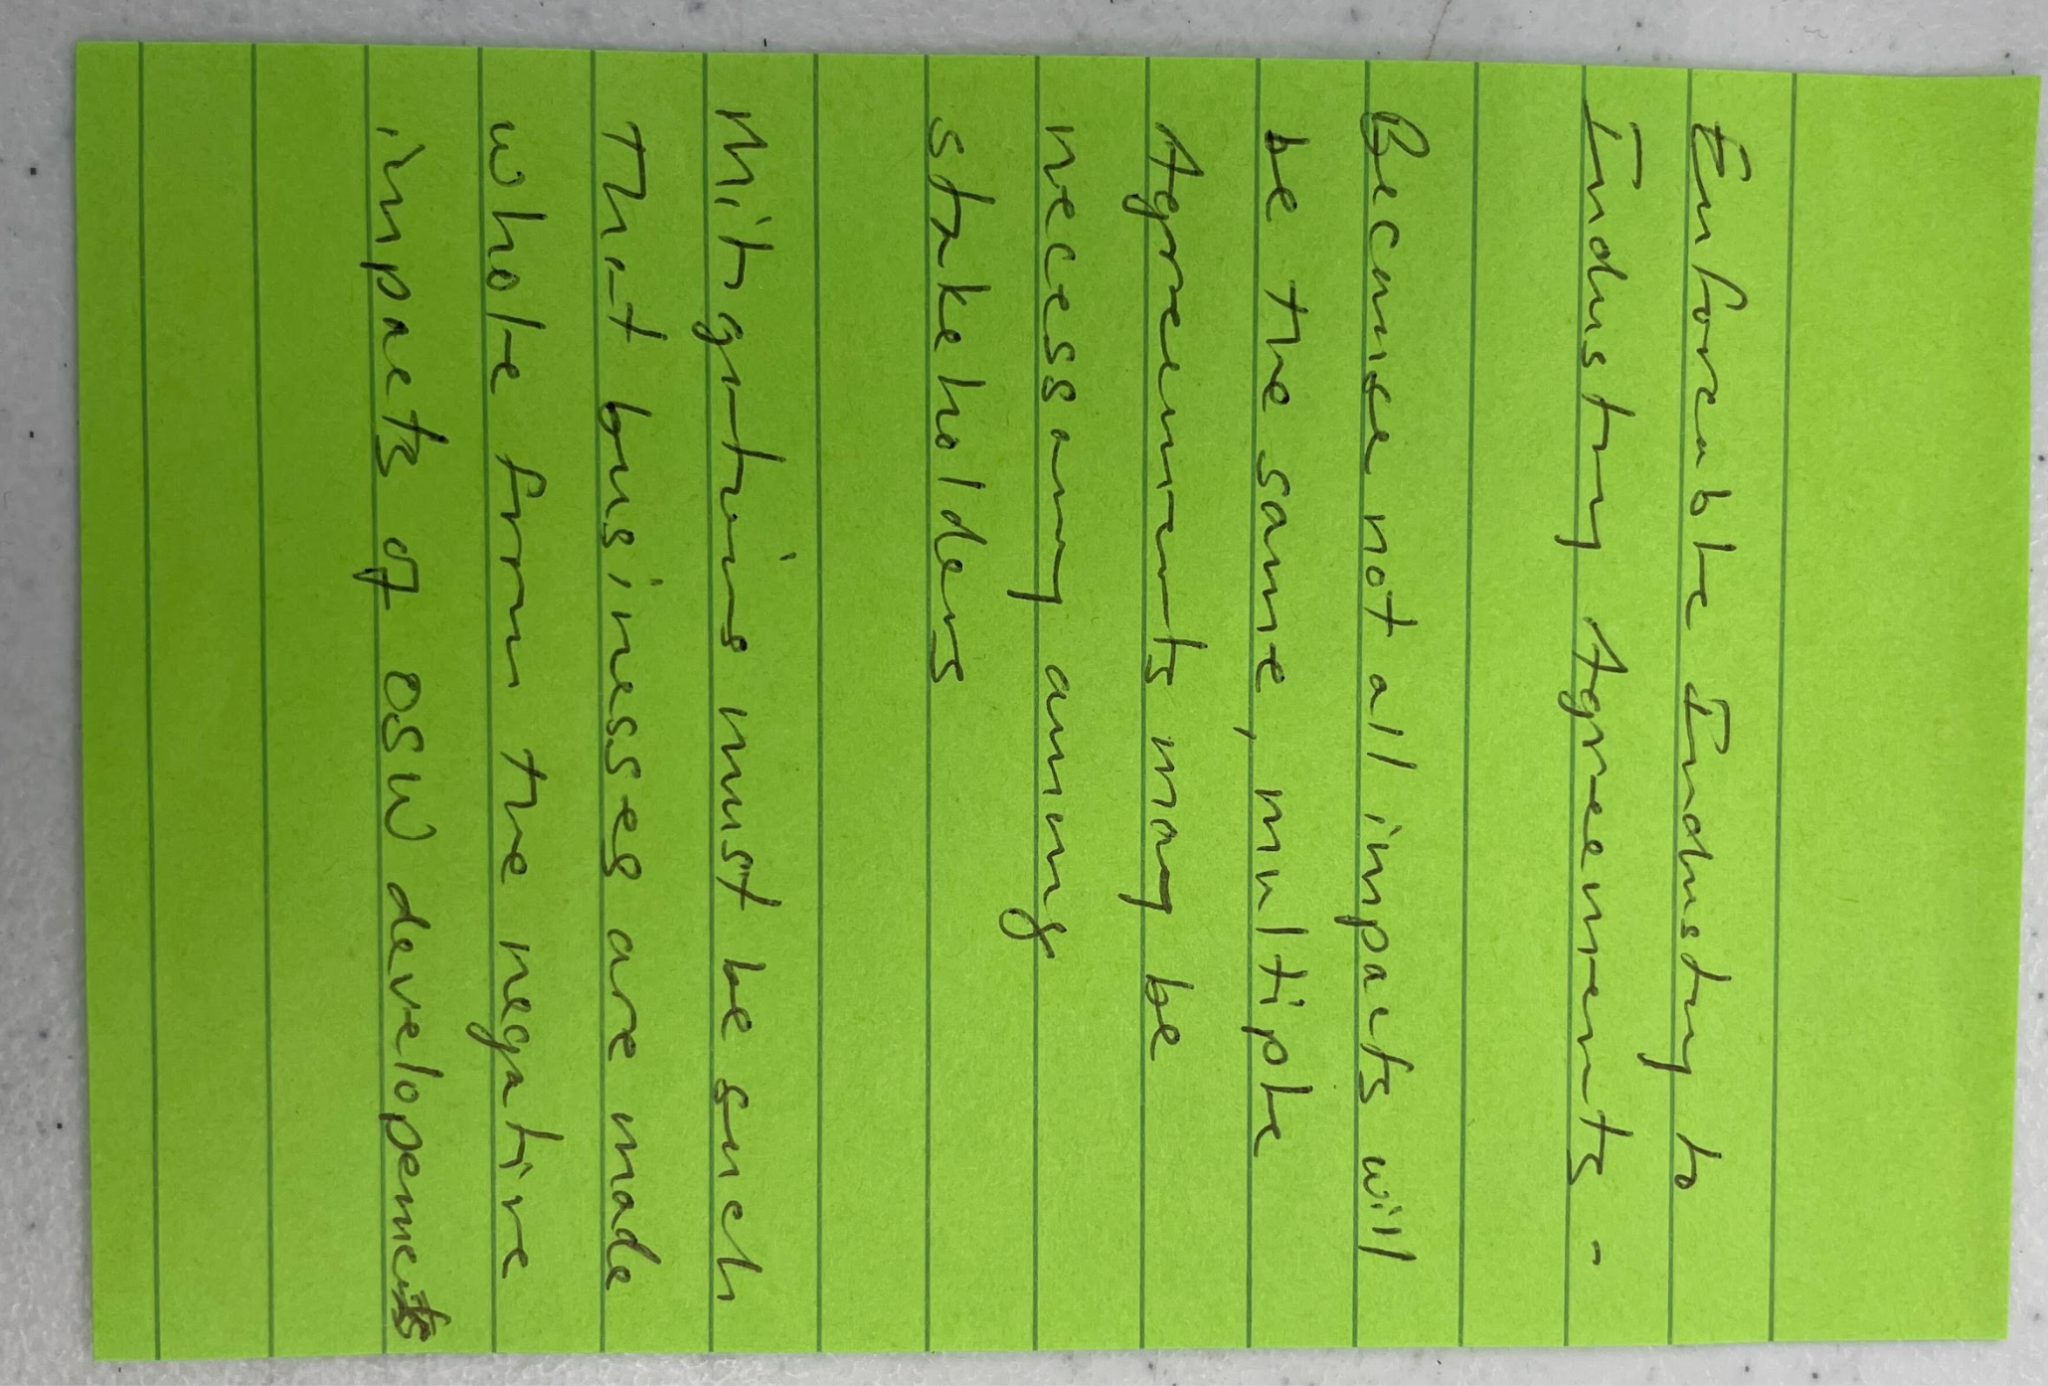 Enforcable Industry to
Industry Agreements -
Because not all impacts will
be the same, multiple
Agreements may be
necessary among
stakeholders
Mitigations must be such
That businesses are made
whole from the negative
impacts of OSW developments